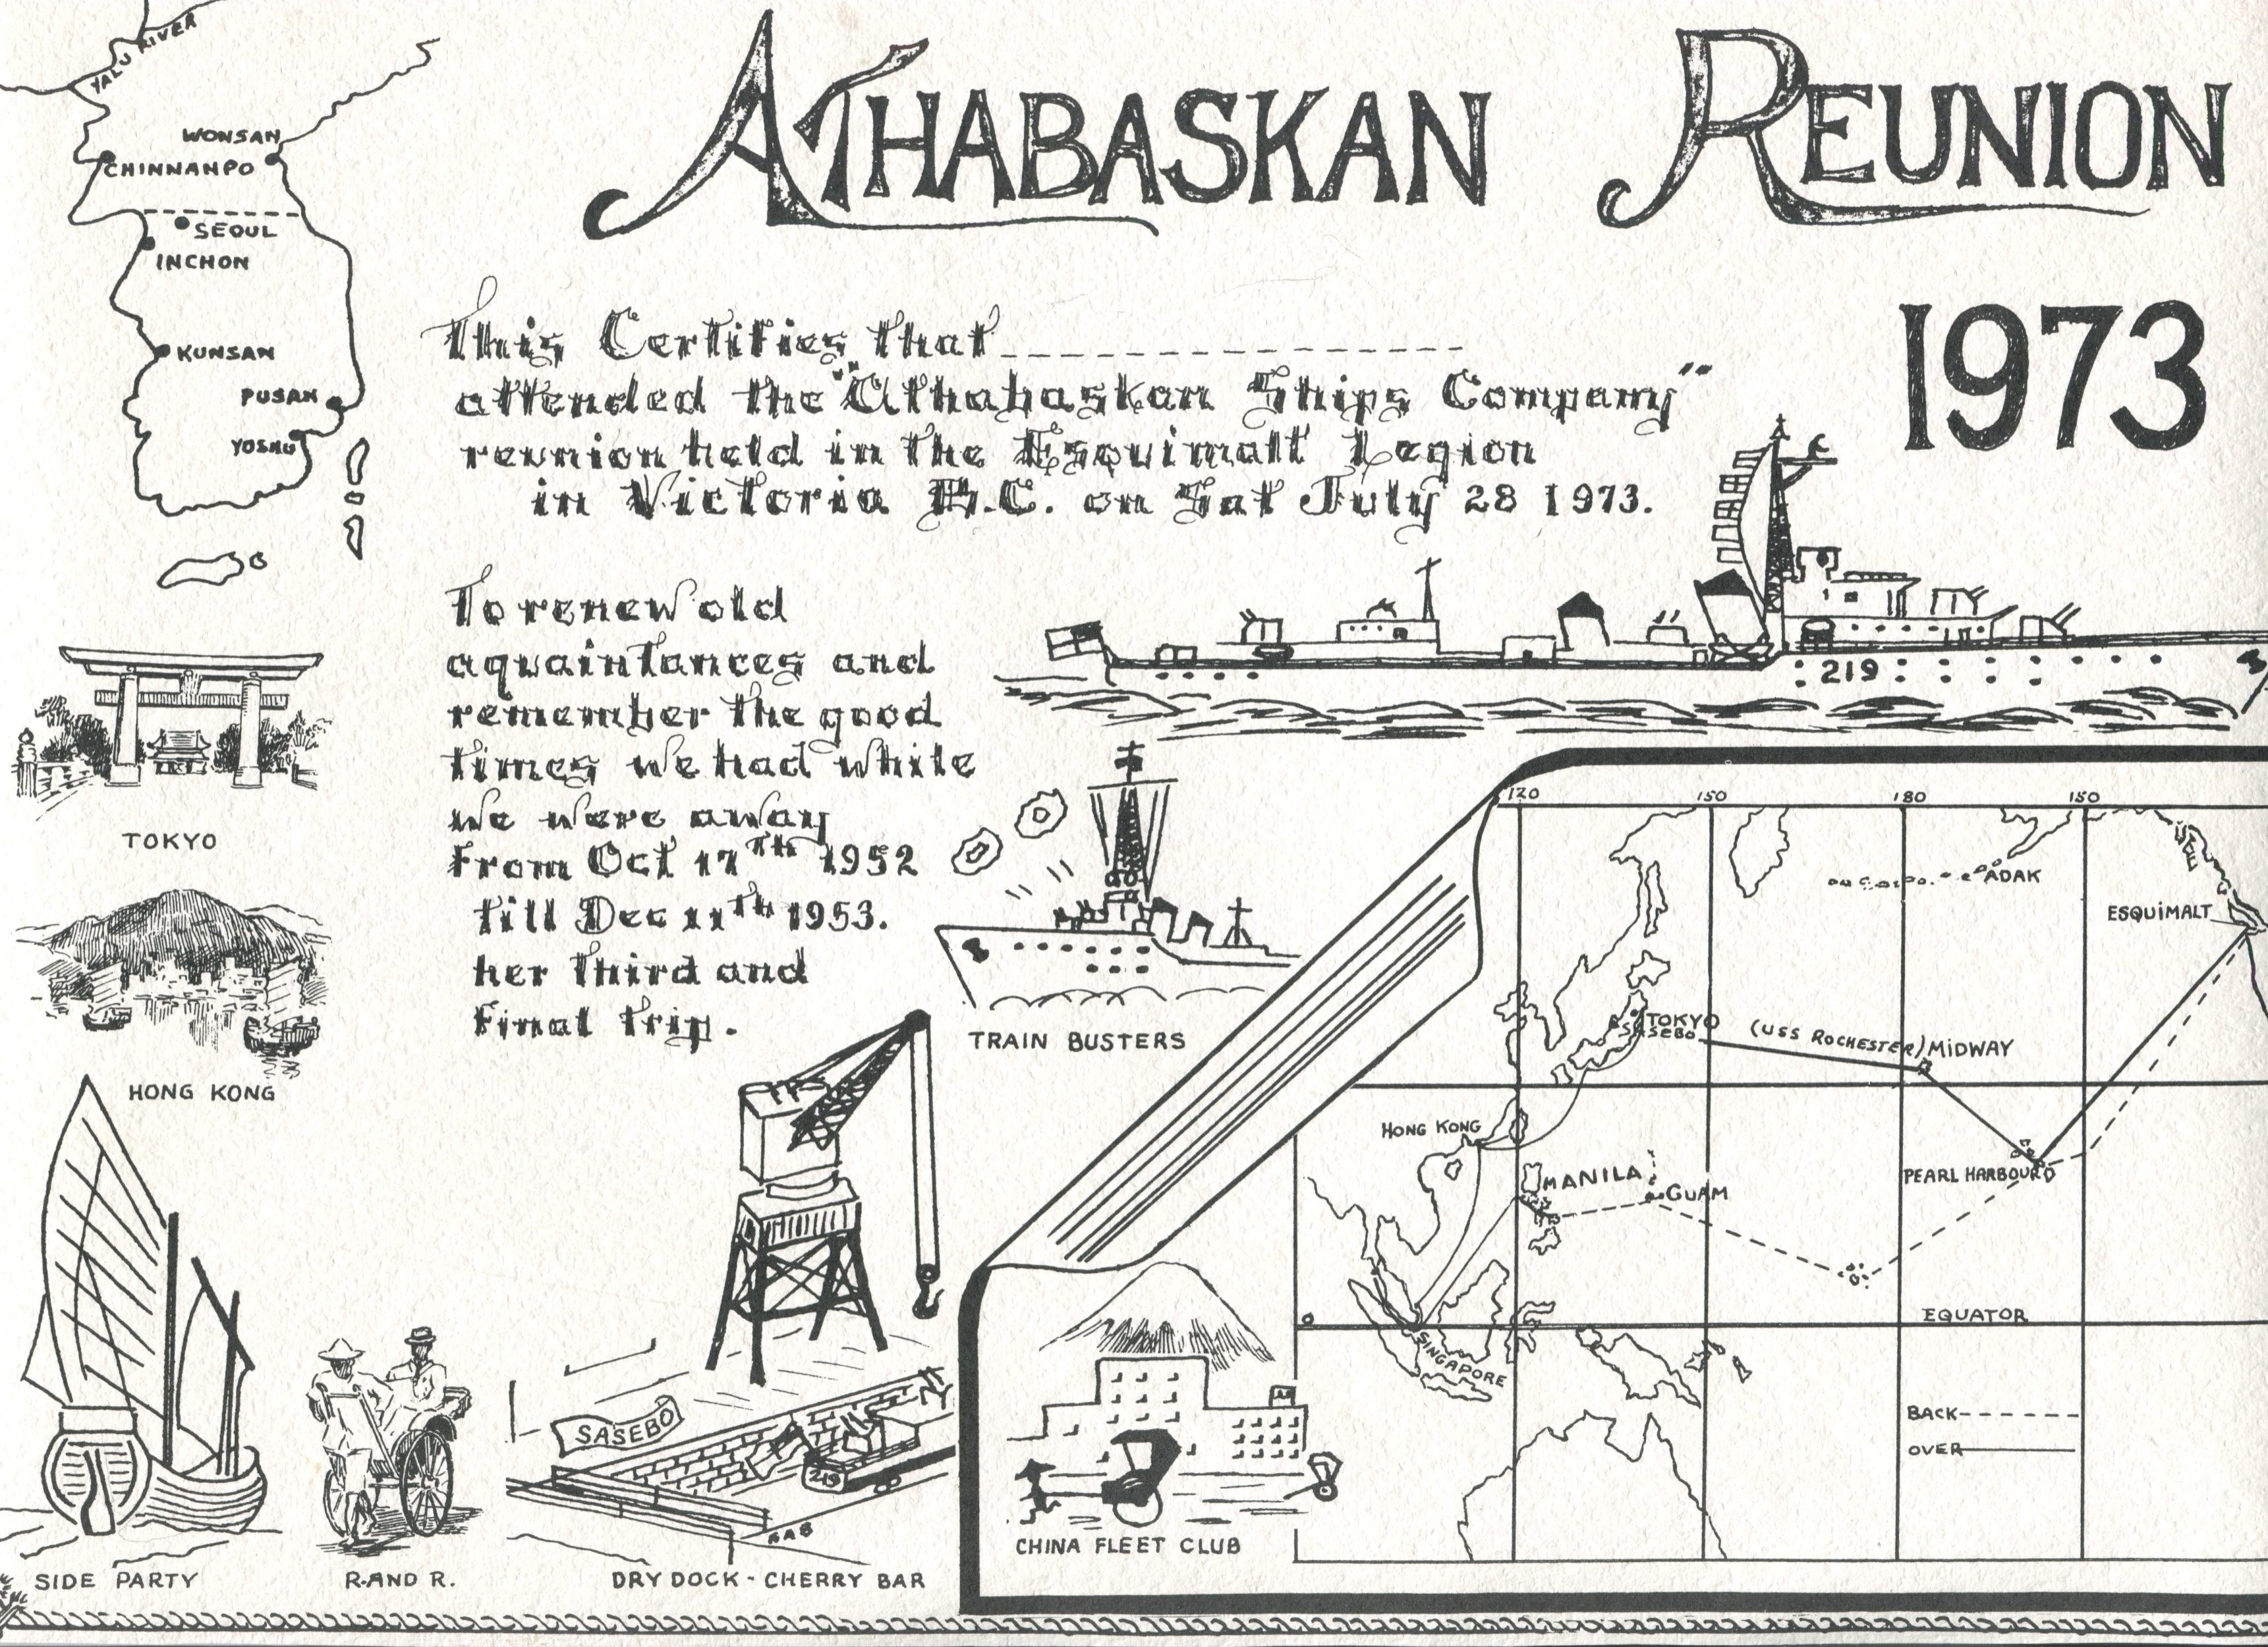 ATHABASKAN REUNION
1973
YALU RIVER
WONSAN
CHINNANPO
SEOUL
INCHON
KUNSAN
PUSAN
YOSHU
This Certifies that_______________
attended the "Athabaskan Ships Company"
reunion held in the Esquimalt Legion
in Victoria B.C. on Sat July 28 1973.
To renew old
aquaintances and
remember the good
times we had while
we were away
From Oct 17TH 1952
till Dec 11th 1953.
her third and
Final trip.
219
TOKYO
HONG KONG
TRAIN BUSTERS
SIDE PARTY
R.AND R.
SASEBO
219
DRY DOCK - CHERRY BAR
CHINA FLEET CLUB
120 150 180 150
ADAK
ESQUIMALT
TOKYO
SASEBO
(USS ROCHESTER) MIDWAY
HONG KONG
PEARL HARBOUR
MANILA
GUAM
0
EQUATOR
SINGAPORE
BACK
OVER